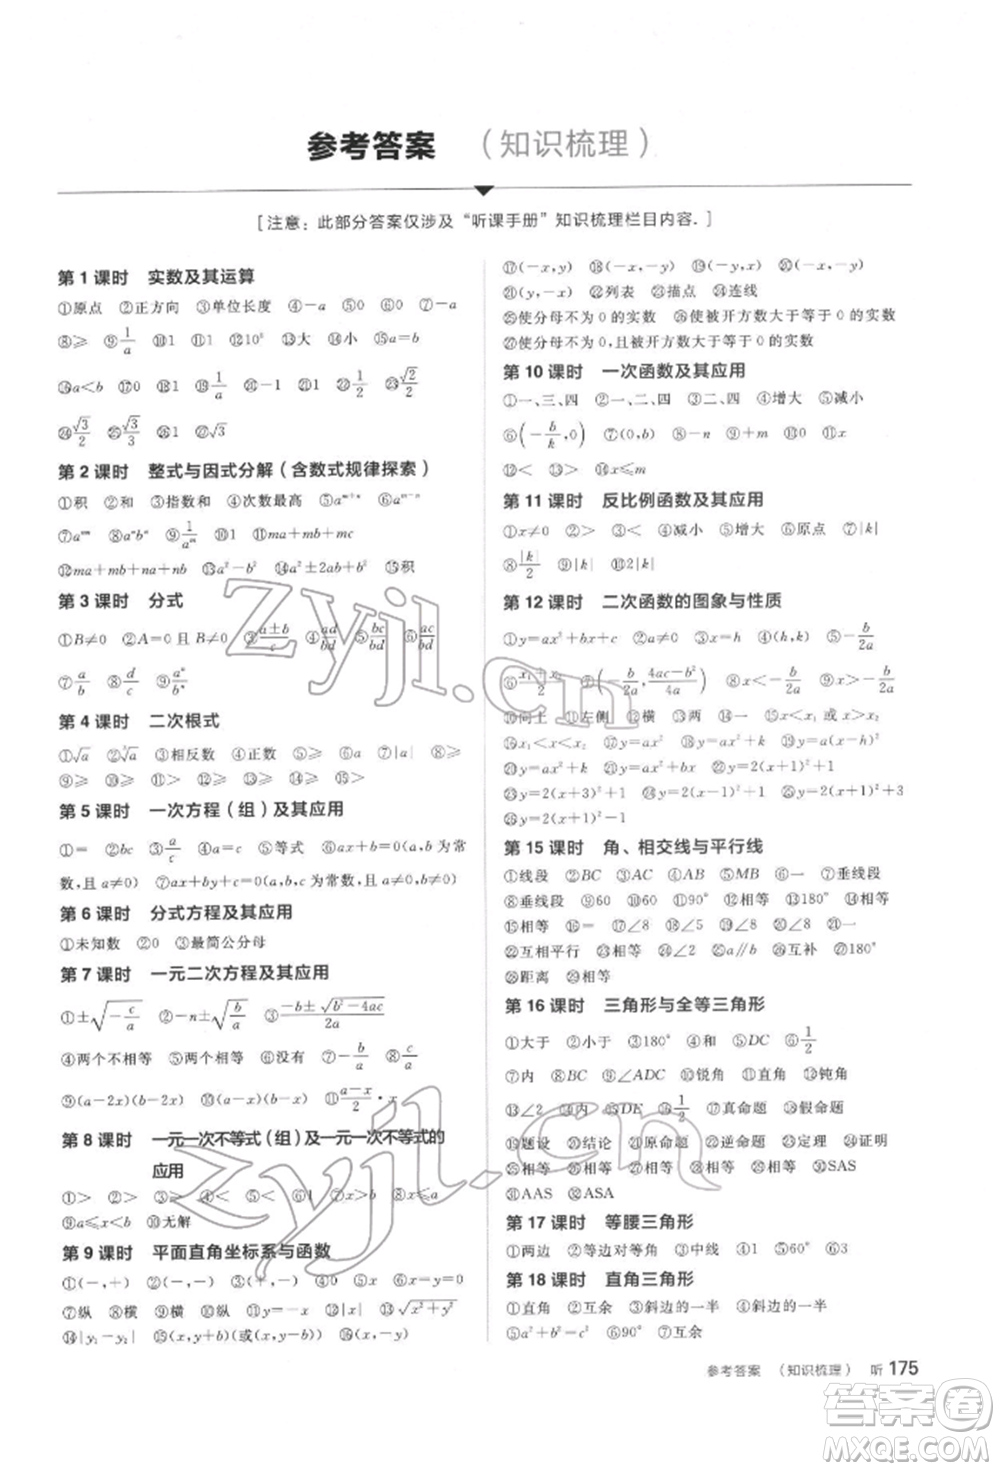 参考答案 （知识梳理）
[注意：此部分答案仅涉及“听课手册”知识梳理栏目内容.]
第 1 课时 实数及其运算
①原点 ②正方向 ③单位长度 ④-a ⑤0 ⑥0 ⑦-a
⑧≥ ⑨1/a ⑩1 ⑪1 ⑫10⁶ ⑬大 ⑭小 ⑮a=b
⑯a<b ⑰0 ⑱1/a ⑲1 ⑳-1 ㉑1 ㉒1/2 ㉓√2/2
㉔√3/2 ㉕√3/3 ㉖1 ㉗√3
第 2 课时 整式与因式分解（含数式规律探索）
①积 ②和 ③指数和 ④次数最高 ⑤aᵐ⁺ⁿ ⑥aᵐ⁻ⁿ
⑦aᵐⁿ ⑧aⁿbⁿ ⑨1/aᵐ ⑩1 ⑪ma+mb+mc
⑫ma+mb+na+nb ⑬a²-b² ⑭a²±2ab+b² ⑮积
第 3 课时 分式
①B≠0 ②A=0且B≠0 ③(a±b)/c ④ad/bd ⑤bc/bd ⑥ac/bd
⑦a/b ⑧d/c ⑨aⁿ/bⁿ
第 4 课时 二次根式
①√a ②∛a ③相反数 ④正数 ⑤≥ ⑥a ⑦|a| ⑧≥
⑨≥ ⑩≥ ⑪≥ ⑫≥ ⑬> ⑭≥ ⑮>
第 5 课时 一次方程（组）及其应用
①= ②bc ③a/c ④c ⑤等式 ⑥ax+b=0(a,b为常
数,且a≠0) ⑦ax+by=c(a,b,c为常数,且a≠0,b≠0)
第 6 课时 分式方程及其应用
①未知数 ②0 ③最简公分母
第 7 课时 一元二次方程及其应用
①±√(-c/a) ②-n±√(b/a) ③(-b±√(b²-4ac))/2a
④两个不相等 ⑤两个相等 ⑥没有 ⑦-b/a ⑧c/a
⑨(a-2x)(b-2x) ⑩(a-x)(b-x) ⑪(a-x)/2·x
第 8 课时 一元一次不等式（组）及一元一次不等式的
应用
①> ②> ③> ④< ⑤< ⑥1 ⑦x>b ⑧x≤a
⑨a≤x<b ⑩无解
第 9 课时 平面直角坐标系与函数
①(-,+) ②(-,-) ③(+,-) ④x=0 ⑤y=0 ⑥横
⑦纵 ⑧横 ⑨横 ⑩纵 ⑪0 ⑫|y| ⑬|x| ⑭√(x²+y²)
⑭|y₁-y₂| ⑮(x,y+b)(或(x,y-b)) ⑯(x,-y)
⑰(-x,y) ⑱(-x,-y) ⑲(y,x) ⑳(-x,-y)
㉑(y,-x) ㉒列表 ㉓描点 ㉔连线
㉕使分母不为0的实数 ㉖使被开方数大于等于0的实数
㉗使分母不为0,且被开方数大于等于0的实数
第 10 课时 一次函数及其应用
①一、三、四 ②一、二、四 ③二、三、四 ④增大 ⑤减小
⑥(-b/k,0) ⑦(0,b) ⑧-n ⑨+m ⑩0 ⑪x=a
⑫< ⑬> ⑭x≤m
第 11 课时 反比例函数及其应用
①x≠0 ②> ③< ④减小 ⑤增大 ⑥原点 ⑦|k|
⑧|k|/2 ⑨|k| ⑩2|k|
第 12 课时 二次函数的图象与性质
①y=ax²+bx+c ②a≠0 ③x=h ④(h,k) ⑤-b/2a
⑥(x₁+x₂)/2 ⑦(-b/2a,(4ac-b²)/4a) ⑧<-b/2a ⑨>-b/2a
⑩向上 ⑪左侧 ⑫横 ⑬两 ⑭一 ⑮x<x₁或x>x₂
⑯x₁<x<x₂ ⑰y=ax² ⑱y=ax²+k
⑳y=ax²+k ㉑y=ax² ㉒y=2(x-1)²+1
㉓y=2(x+3)²+1 ㉔y=2(x-1)²+1 ㉕y=2(x-1)²+3
㉖y=2(x-1)²-1
第 15 课时 角、相交线与平行线
①线段 ②BC ③AC ④AM ⑤MB ⑥一 ⑦垂线段
⑧垂线段 ⑨60 ⑩60 ⑪90° ⑫180° ⑬相等 ⑭相等
⑮相等 ⑯= ⑰∠8 ⑱∠8 ⑲∠5 ⑳相等 ㉑一
㉒互相平行 ㉓相等 ㉔∠2 ㉕a∥b ㉖互补 ㉗180°
㉘距离 ㉙相等
第 16 课时 三角形与全等三角形
①大于 ②小于 ③180° ④和 ⑤DC ⑥1/2
⑦内 ⑧BC ⑨∠ADC ⑩锐角 ⑪直角 ⑫钝角
⑬∠2 ⑭内 ⑮DE ⑯1/2 ⑰真命题 ⑱假命题
⑲题设 ⑳结论 ㉑原命题 ㉒逆命题 ㉓定理 ㉔证明
㉕相等 ㉖相等 ㉗相等 ㉘相等 ㉙SSS ㉚SAS
㉛AAS ㉜ASA
第 17 课时 等腰三角形
①两边 ②等边对等角 ③中线 ④1 ⑤60° ⑥3
第 18 课时 直角三角形
①直角 ②互余 ③斜边的一半 ④斜边的一半
⑤a²+b²=c² ⑥90° ⑦互余
参考答案 （知识梳理） 听 175
Zyjl.cn
zyjl.cn
答案卷
MXQE.COM